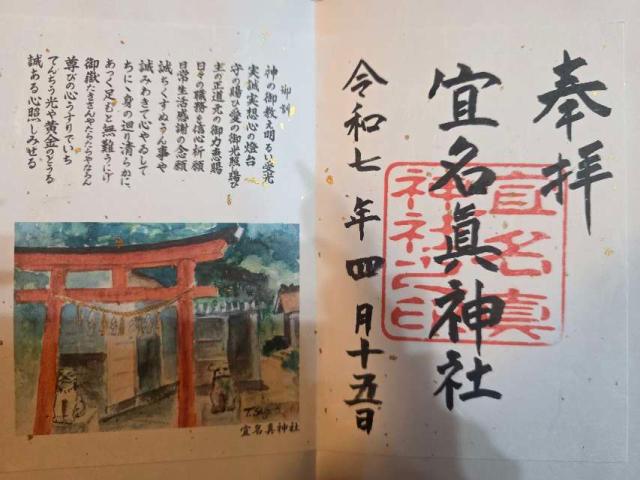 奉拝
宜名眞神社
宜名真
神社之印
令和七年四月十五日
御訓
神の御教え明るい栄光
実誠実想心の燈台
守の賜ひ愛の御光照賜ひ
主の正道元の御力恵賜
日々の職務を信心祈願
日常生活感謝の念願
誠ちくすぬうん事や
誠みわきて心やゐして
ちに丶身の廻り清らかに、
あつく足もと無難うにげ
御嶽たきさんやたらたらやならん
尊びの心うすりでいち
てんちう光や黄金のとうる
誠ある心照しみせる
宜名真神社